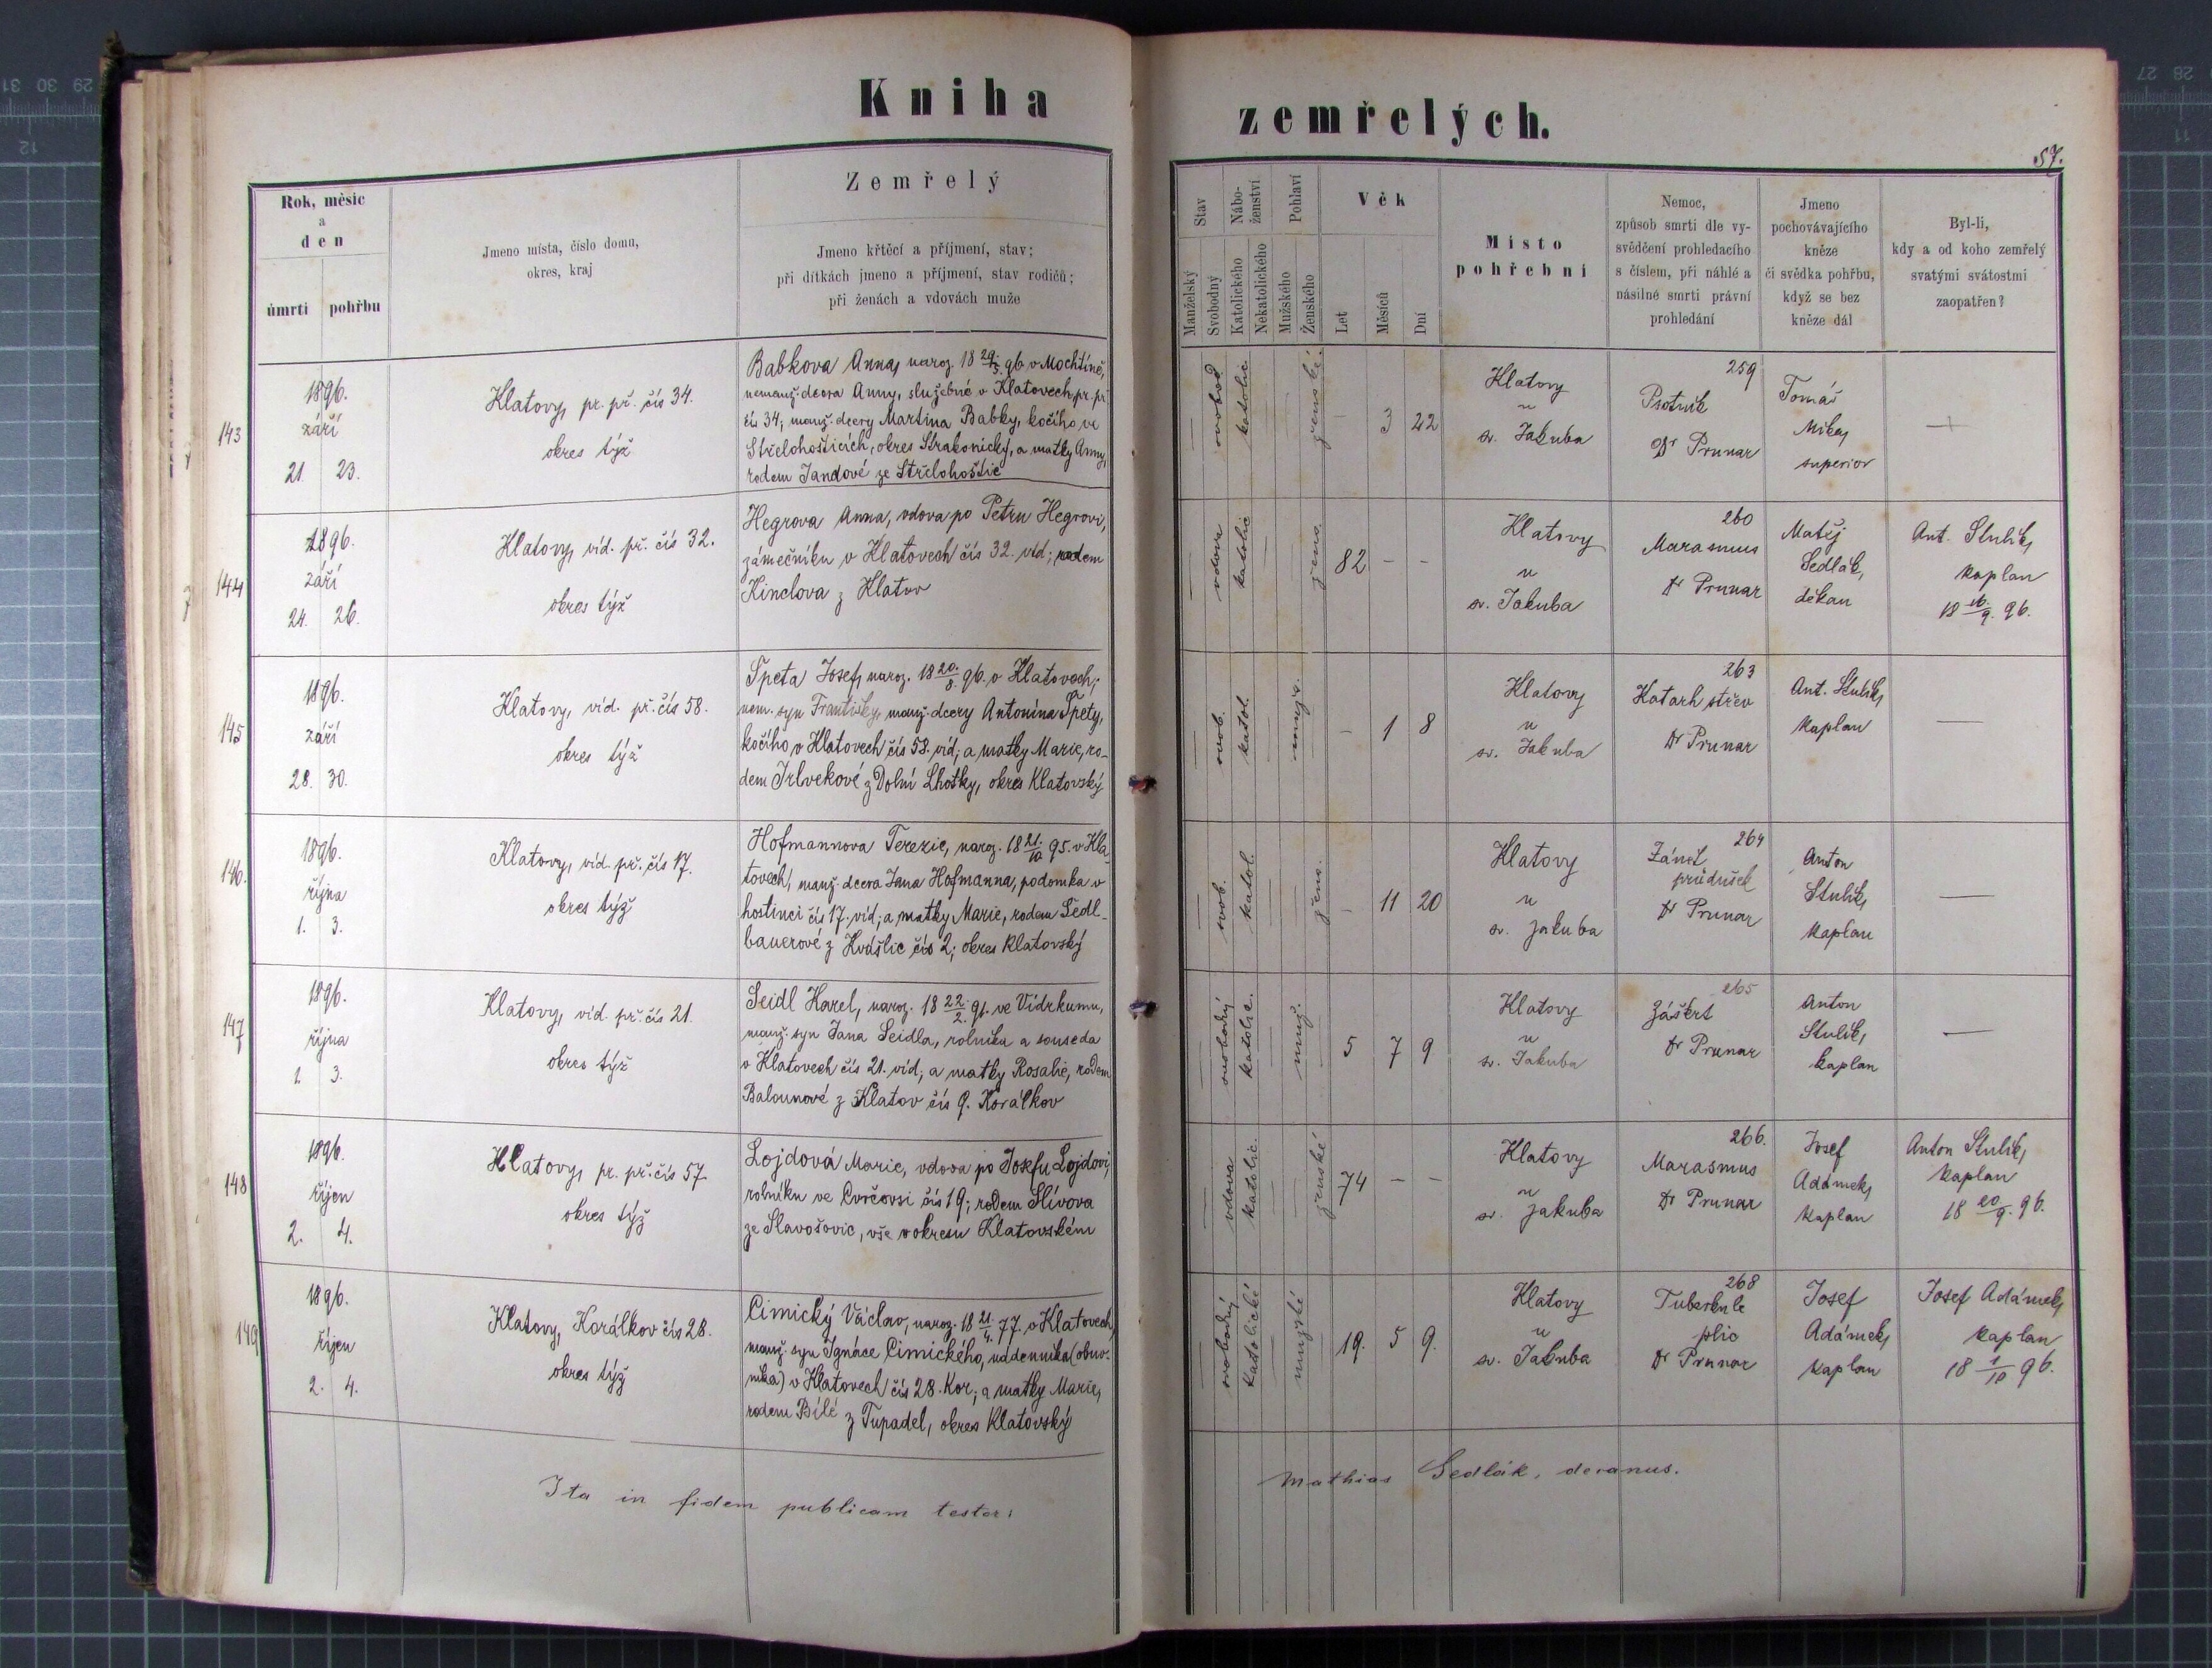 Kniha
zemřelých.
57.
Rok, měsíc
a
den
úmrtí pohřbu
Jmeno místa, číslo domu,
okres, kraj
Zemřelý
Jmeno křtěcí a příjmení, stav;
při dítkách jmeno a příjmení, stav rodičů;
při ženách a vdovách muže
Stav
Manželský
Svobodný
Nábo-
ženství
Katolického
Nekatolického
Pohlaví
Mužského
Ženského
Věk
Let
Měsíců
Dní
Místo
pohřební
Nemoc,
způsob smrti dle vy-
svědčení prohledacího
s číslem, při náhlé a
násilné smrti právní
prohledání
Jmeno
pochovávajícího
kněze
či svědka pohřbu,
když se bez
kněze dál
Byl-li,
kdy a od koho zemřelý
svatými svátostmi
zaopatřen?
143
1896.
září
21. 23.
Klatovy, pr. př. čís 34.
okres týž
Babkova Anna, naroz. 18 29/5. 96 v Mochtíně,
nemanž. dcera Anny, služebné v Klatovech pr. př.
čís 34; manž. dcery Martina Babky, kočího ve
Střelohošticích, okres Strakonický, a matky Anny,
rodem Jandové ze Střelohoštic
svobod.
katolic.
ženské.
- 3 22
Klatovy
u
sv. Jakuba
259
Psotník
Dr Prunar
Tomáš
Mika,
superior
—
144
1896.
září
24. 26.
Klatovy, víd. př. čís 32.
okres týž
Hegrova Anna, vdova po Petru Hegrovi,
zámečníku v Klatovech čís 32. víd; rodem
Kinclova z Klatov
vdova
katolic
ženo.
82 - -
Klatovy
u
sv. Jakuba
260
Marasmus
Dr Prunar
Matěj
Sedlák,
děkan
Ant. Stulík,
kaplan
18 16./9. 96.
145
1896.
září
28. 30.
Klatovy, víd. př. čís 58.
okres týž
Špeta Josef, naroz. 18 20./8. 96. v Klatovech;
nem. syn Františky, manž. dcery Antonína Špety,
kočího v Klatovech čís 58. víd; a matky Marie, ro-
dem Irlvekové z Dolní Lhotky, okres Klatovský
svob.
katol.
- 1 8
Klatovy
u
sv. Jakuba
263
Katarh střev
Dr Prunar
Ant. Stulík,
kaplan
—
146.
1896.
října
1. 3.
Klatovy, víd. př. čís 17.
okres týž
Hofmannova Terezie, naroz. 18 21./10 95. v Kla-
tovech, manž. dcera Jana Hofmanna, podomka v
hostinci čís 17. víd; a matky Marie, rodem Sedl-
bauerové z Kvášlic čís 2; okres Klatovský
svob.
katol.
ženo.
- 11 20
Klatovy
u
sv. Jakuba
264
Zánět
průdušek
Dr Prunar
Anton
Stulík,
kaplan
—
147
1896.
října
1. 3.
Klatovy, víd. př. čís 21.
okres týž
Seidl Karel, naroz. 18 22./2. 91. ve Vídrkumu,
manž. syn Jana Seidla, rolníka a souseda
v Klatovech čís 21. víd; a matky Rosalie, rodem
Balounové z Klatov čís 9. Korálkov
svobodný
katolic.
muž.
5 7 9
Klatovy
u
sv. Jakuba
265
Záškrt
Dr Prunar
Anton
Stulík,
kaplan
—
148
1896.
říjen
2. 4.
Klatovy, pr. př. čís 57
okres týž
Lojdová Marie, vdova po Josefu Lojdovi,
rolníku ve Cvrčovsi čís 19; rodem Slívova
ze Slavošovic, vše v okresu Klatovském
vdova
katolic.
ženské
74 - -
Klatovy
u
sv. Jakuba
266.
Marasmus
Dr Prunar
Josef
Adámek,
kaplan
Anton Stulík,
kaplan
18 20/9. 96.
149
1896.
říjen
2. 4.
Klatovy, Korálkov čís 28.
okres týž
Cimický Václav, naroz. 18 21./4. 77. v Klatovech,
manž. syn Ignáce Cimického, nádenníka (obuv-
níka) v Klatovech čís 28. Kor; a matky Marie,
rodem Bílé z Tupadel, okres Klatovský
svobodný
katolické
mužské
19. 5 9.
Klatovy
u
sv. Jakuba
268
Tuberkule
plic
Dr Prunar
Josef
Adámek,
kaplan
Josef Adámek,
kaplan
18 1/10 96.
Ita in fidem publicam testor:
Mathias Sedlák, decanus.